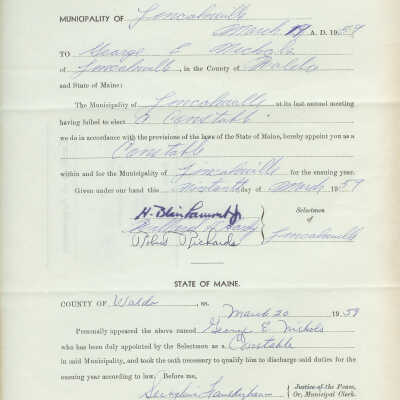 MUNICIPALITY OF Lincolnville
March 19 A. D. 1959
TO George E Nichols
of Lincolnville, in the County of Waldo
and State of Maine:
The Municipality of Lincolnville at its last annual meeting
having failed to elect a Constable
we do in accordance with the provisions of the laws of the State of Maine, hereby appoint you as a
Constable
within and for the Municipality of Lincolnville for the ensuing year.
Given under our hand this day of March 1959
Selectmen
of
Lincolnville
Richards
STATE OF MAINE.
COUNTY OF Waldo, ss.
March 20 1959
Personally appeared the above named George E. Nichols
who has been duly appointed by the Selectmen as a Constable
in said Municipality, and took the oath necessary to qualify him to discharge said duties for the
ensuing year according to law, Before me,
Justice of the Peace,
Or, Municipal Clerk.